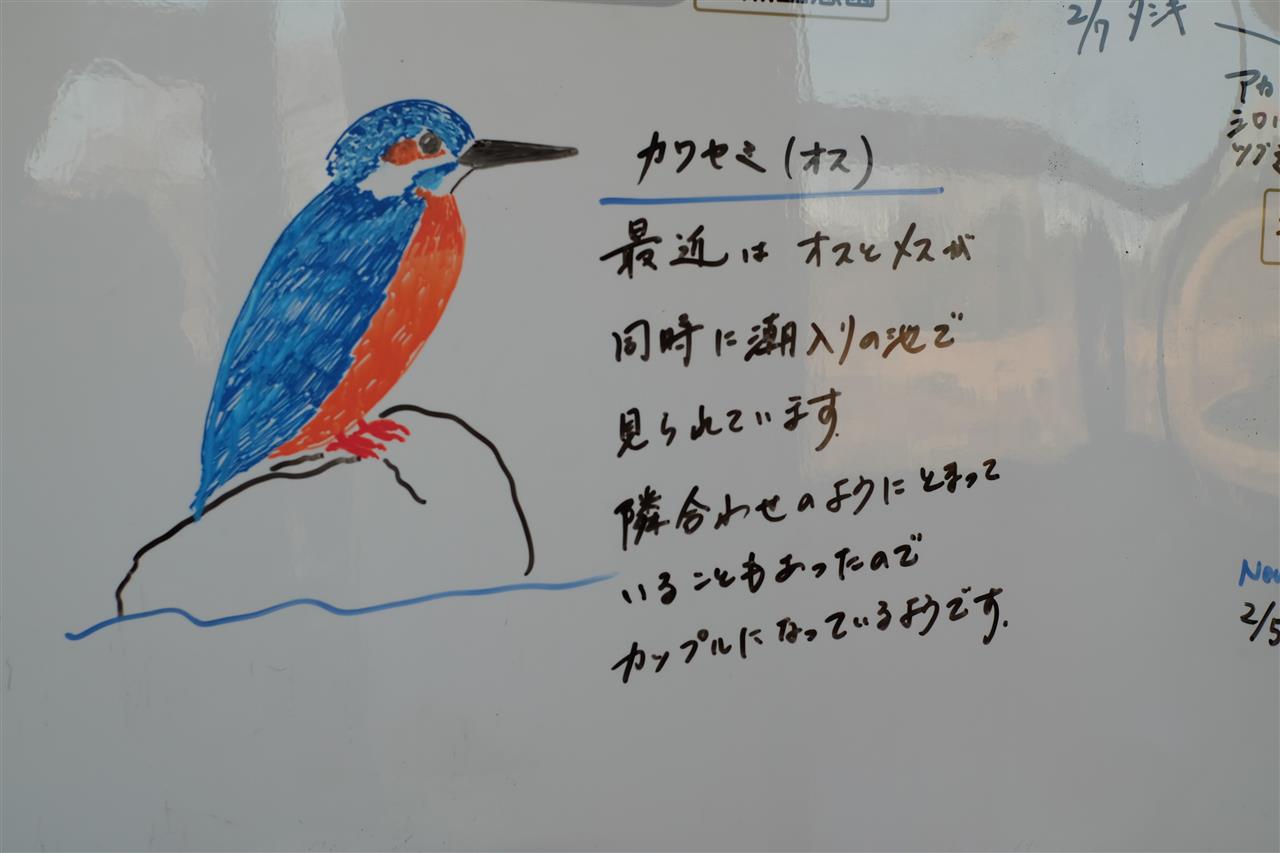 カワセミ(オス)
最近は オスとメスが
同時に潮入りの池で
見られています。
隣合わせのようにとまって
いることもあったので
カップルになっているようです。
2/7 タシギ
アカ
シロハ
ツグミ
2/5